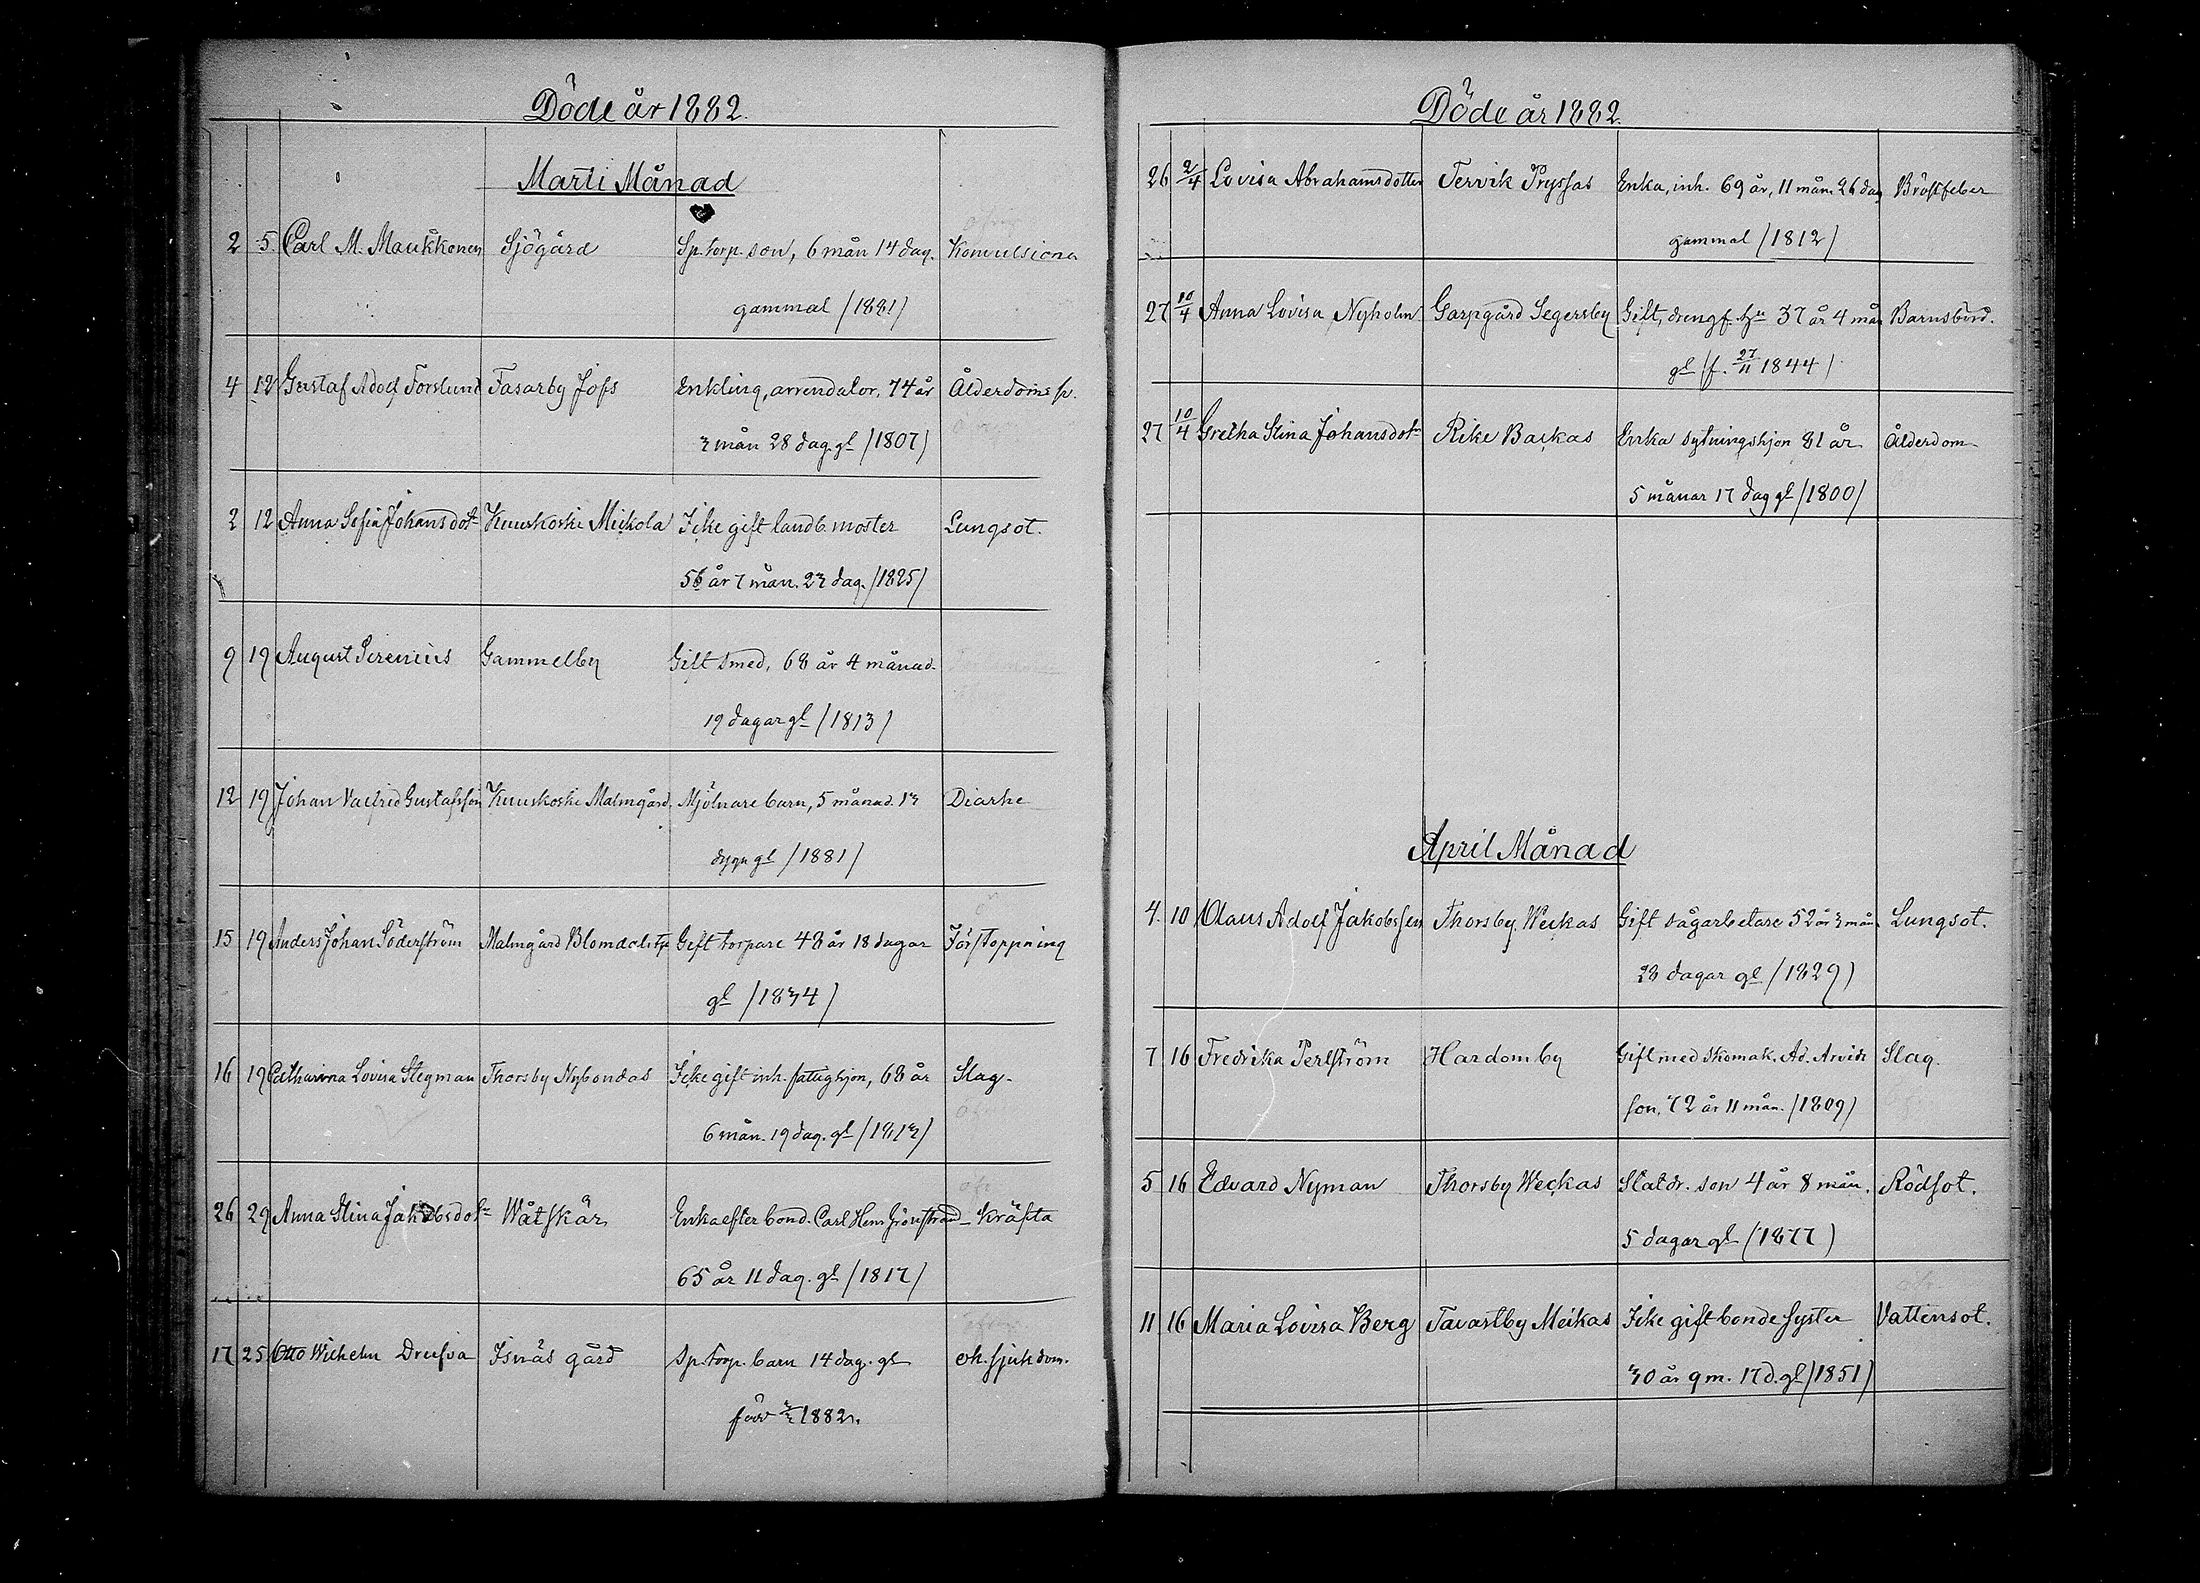 Döde år 1882.
Marti Månad
2 5. Carl M. Maukkonen Sjögård Sp. torp. son, 6 mån 14 dag. Konvulsioner
gammal /1881/
4 12 Gustaf Adolf Forslund Fasarby Jofs Enkling, arrendator, 74 år Ålderdoms sv.
3 mån 28 dag. gl /1807/
2 12 Anna Sofia Johansdotr Kuuskoski Mickola Icke gift landb. moster Lungsot.
56 år 7 mån. 23 dag. /1825/
9 19 August Serenius Gammelby Gift smed, 68 år 4 månad.
19 dagar gl /1813/
12 19 Johan Valfrid Gustafsson Kuuskoski Malmgård. Mjölnare barn, 5 månad. 13 Diarhe
dygn gl /1881/
15 19 Anders Johan Söderström Malmgård Gift torpare 48 år 18 dagar Förstoppning
gl /1834/
16 19 Catharina Lovisa Stegman Thorsby Nybondas Icke gift inh. fattighjon, 68 år Slag.
6 mån. 19 dag. gl /1813/
26 29 Anna Stina Jakobsdotr Våtskär Enka efter bond. Carl Henr Grönstrand Kräfta
65 år 11 dag. gl /1817/
17 25 Otto Wilhelm Drufva Isnäs gård Sp. torp. barn 14 dag. gl ok. sjukdom.
född 3/3 1882.
Döde år 1882.
26 2/4 Lovisa Abrahamsdotter Tervik Pryssas Enka, inh. 69 år, 11 mån. 26 dag Bröstfeber
gammal /1812/
27 10/4 Anna Lovisa Nyholm Garpgård Segersby Gift, drengf. hu 37 år 4 mån Barnsbörd.
gl (f. 27/11 1844)
27 10/4 Gretha Stina Johansdotr Rike Backas Enka sytningshjon 81 år Ålderdom
5 månar 17 dag gl /1800/
April Månad
4. 10 Claus Adolf Jakobsson Thorsby Weckas Gift sågarbetare 52 år 3 mån. Lungsot.
28 dagar gl /1829)
7 16 Fredrika Perlström Hardomby Gift med skomak. Ad. Arvids Slag.
son, 72 år 11 mån. /1809)
5 16 Edvard Nyman Thorsby Weckas Statdr. son 4 år 8 mån. Rödsot.
5 dagar gl (1877)
11 16 Maria Lovisa Berg Tavastby Meikas Icke gift bonde syster Vattensot.
30 år 9 m. 17 d. gl /1851)